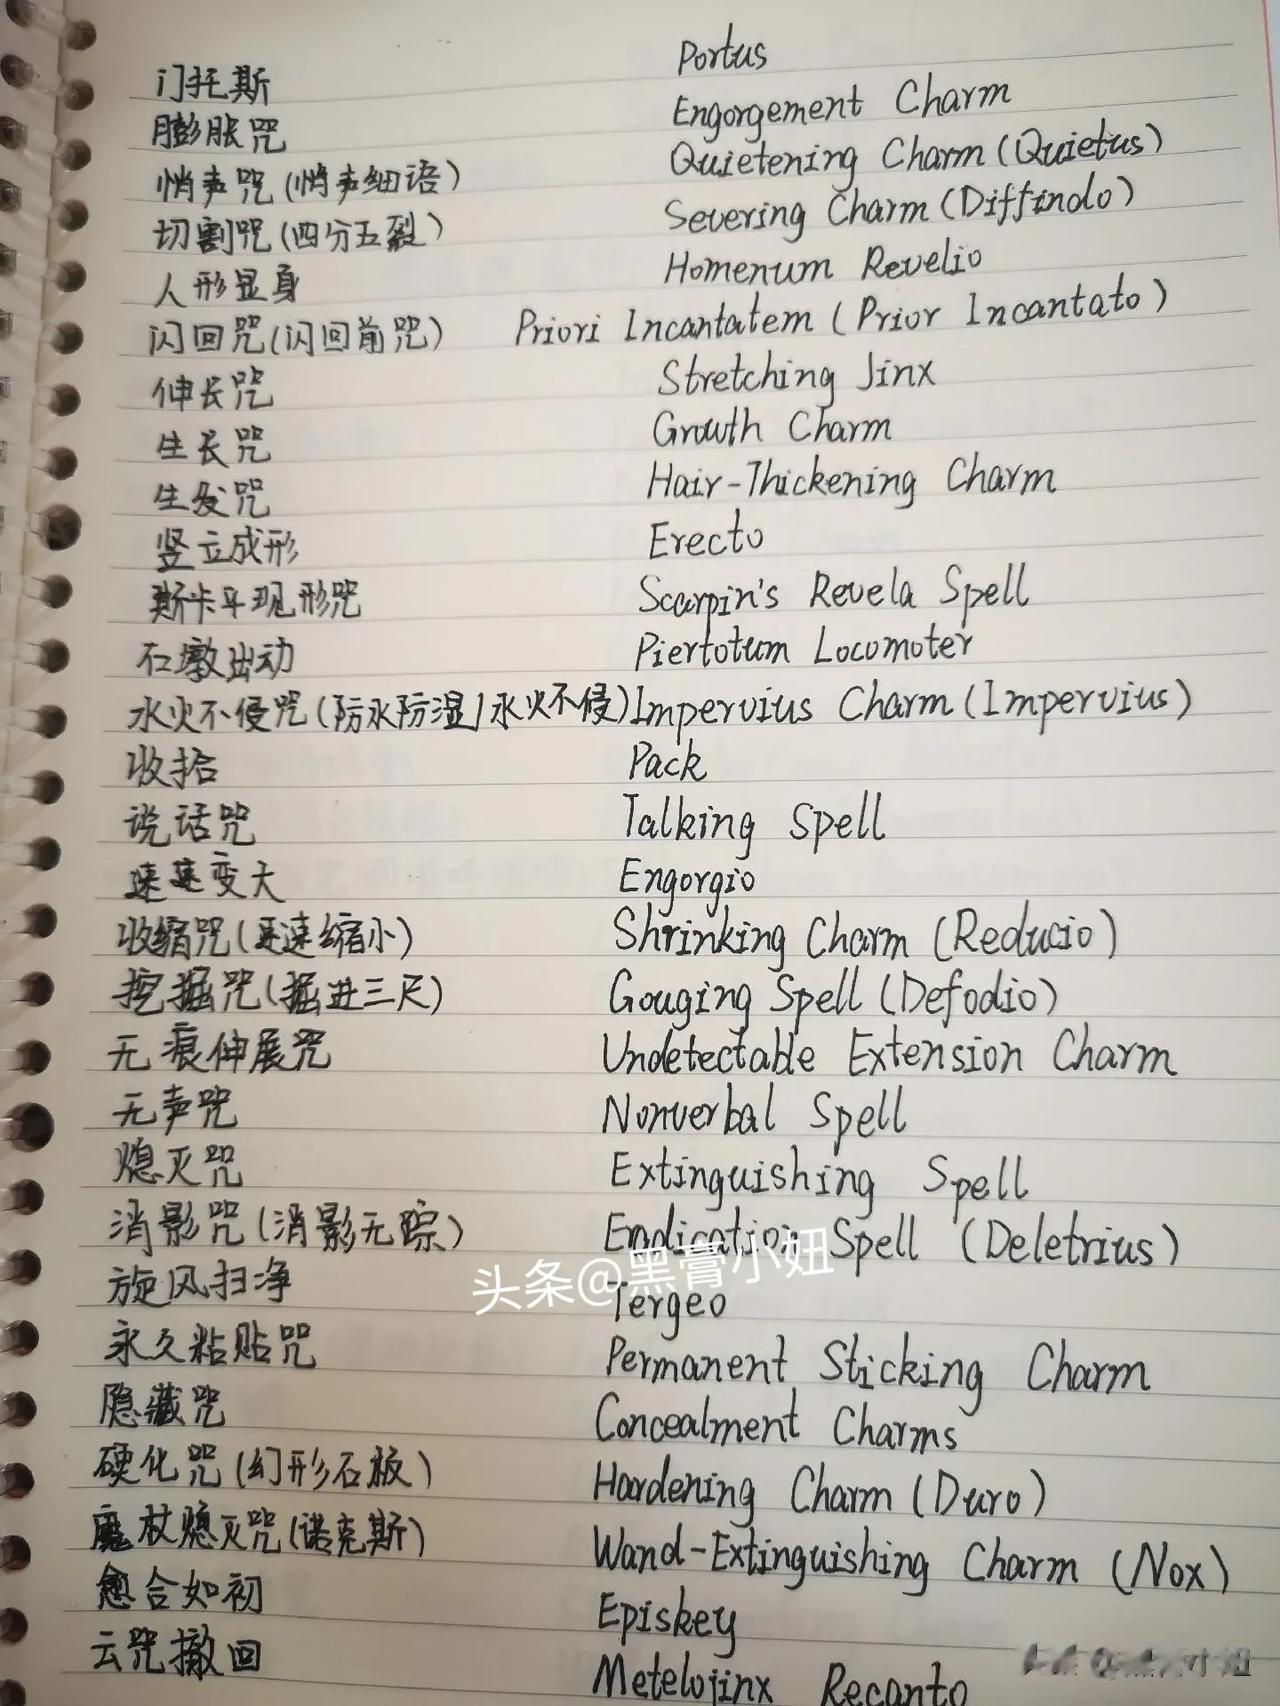 门托斯 Portus
膨胀咒 Engorgement Charm
悄声咒(悄声细语) Quietening Charm (Quietus)
切割咒(四分五裂) Severing Charm (Diffindo)
人形显身 Homenum Revelio
闪回咒(闪回前咒) Priori Incantatem (Prior Incantato)
伸长咒 Stretching Jinx
生长咒 Growth Charm
生发咒 Hair-Thickening Charm
竖立成形 Erecto
斯卡平现形咒 Scarpin's Revela Spell
石墩出动 Piertotum Locomoter
水火不侵咒(防水防湿/水火不侵) Impervius Charm (Impervius)
收拾 Pack
说话咒 Talking Spell
速速变大 Engorgio
收缩咒(速速缩小) Shrinking Charm (Reducio)
挖掘咒(掘进三尺) Gouging Spell (Defodio)
无痕伸展咒 Undetectable Extension Charm
无声咒 Nonverbal Spell
熄灭咒 Extinguishing Spell
消影咒(消影无踪) Spell (Deletrius)
头条@黑膏小妞
旋风扫净 Tergeo
永久粘贴咒 Permanent Sticking Charm
隐藏咒 Concealment Charms
硬化咒(幻形石板) Hardening Charm (Duro)
魔杖熄灭咒(诺克斯) Wand-Extinguishing Charm (Nox)
愈合如初 Episkey
云咒撤回 Metelojinx Recanto